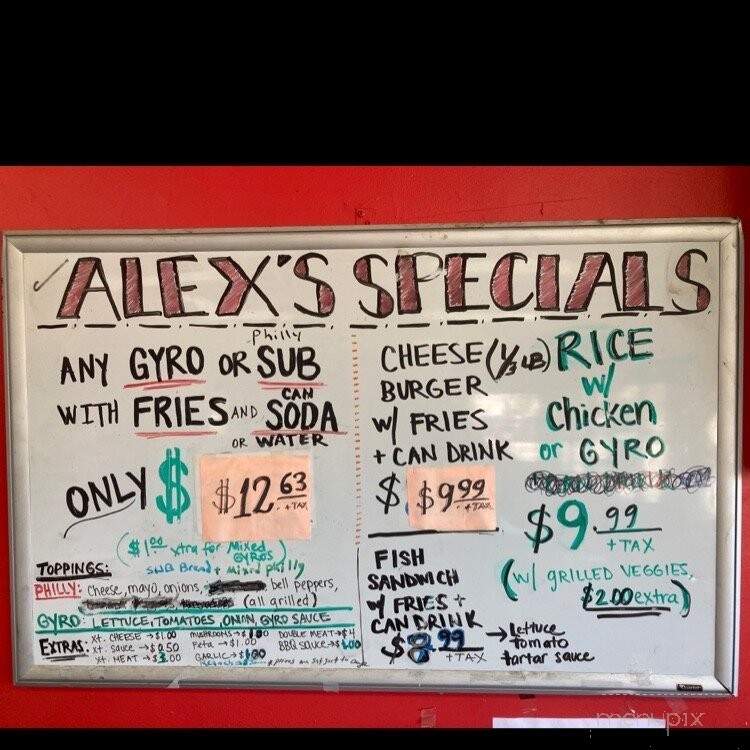 ALEX'S SPECIALS
Philly
ANY GYRO OR SUB
WITH FRIES AND CAN SODA
OR WATER
ONLY $ $12.63
+TAX
($1.00 xtra for Mixed GYROS)
SUB Bread + Mixed philly
TOPPINGS:
PHILLY: cheese, mayo, onions, bell peppers,
(all grilled)
GYRO: LETTUCE, TOMATOES, ONION, GYRO SAUCE
EXTRAS: XT. CHEESE → $1.00 MUSHROOMS → $1.00 DOUBLE MEAT → $4
XT. Sauce → $0.50 Feta → $1.00 BBQ SAUCE → $1.00
XT. MEAT → $3.00 GARLIC → $1.00
CHEESE (1/3 LB)
BURGER
W/ FRIES
+ CAN DRINK
$ $9.99
+TAX
FISH
SANDWICH
W/ FRIES +
CAN DRINK
$8.99
+TAX
→ Lettuce
tomato
tartar sauce
RICE
W/
Chicken
or GYRO
$9.99
+TAX
(W/ GRILLED VEGGIES,
$2.00 extra)
menupix